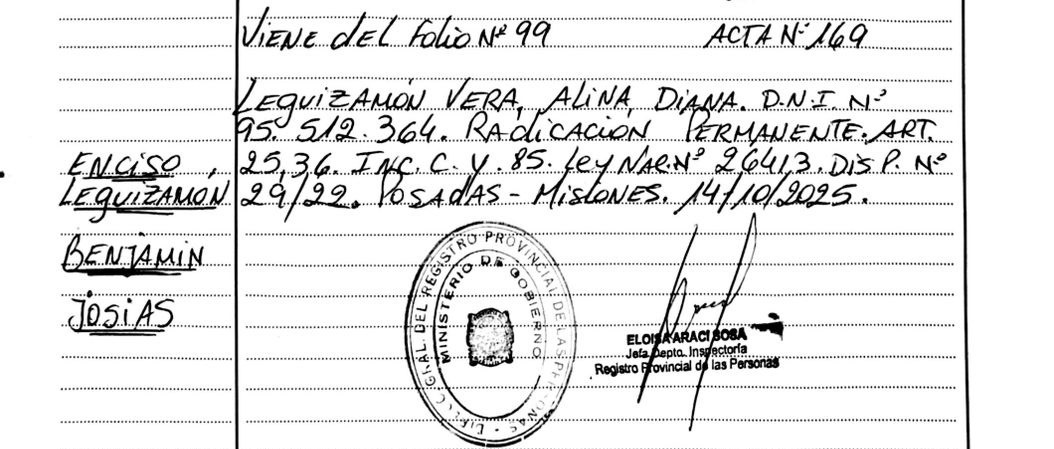 Viene del Folio Nº 99 ACTA Nº 169
Leguizamón Vera, Alina, Diana. D.N.I. Nº
95.512.364. Radicación Permanente. Art.
Enciso, 25,36. Inc. C. Y. 85. Ley Nac.Nº 26413. Disp. Nº
Leguizamon 29/22. Posadas - Misiones. 14/10/2025.
Benjamin
Josias
DEL REGISTRO PROVINCIAL DE LAS PERSONAS
MINISTERIO DE GOBIERNO
ELOISA ARACI SOSA
Jefa Depto. Inspectoría
Registro Provincial de las Personas